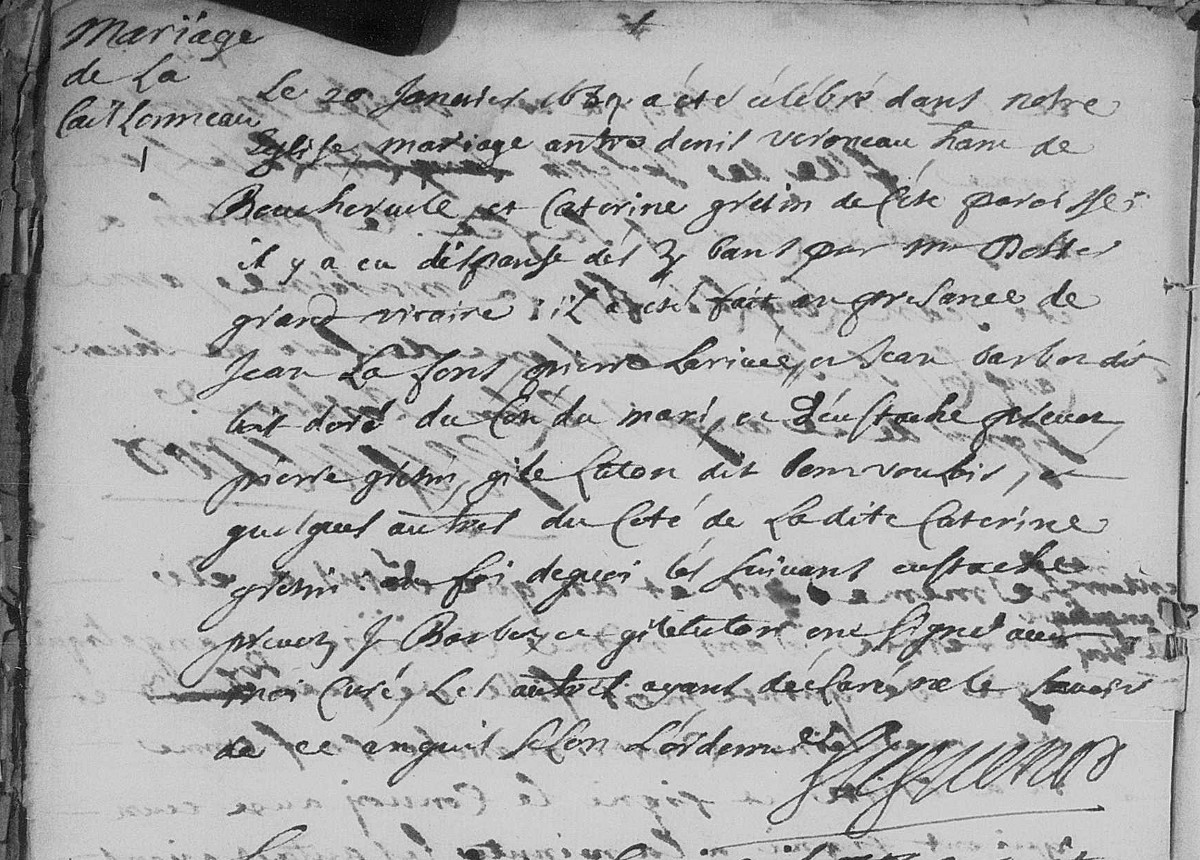 Mariage
de La
Le 20 Janvier 1689 a été célébré dans notre
Eglise, mariage antre denis veroneau hant de
Boucherville et Caterine gresin de Cete paroisse;
il y a eu dispanse dés 3 bans par mr Dollier
grand vicaire : il a été fait an presance de
Jean La fons pierre Larivée, et Jean barbos dit
boit doré du Coté du mari, et d'eustache prevos
pierre gresin, gile Luton dit bonvouloir, et
quelques autres du Coté de Ladite Caterine
gresin en foi dequoi les suivant eustache
prevos J Barboz et gileluton ont Signé avec
moi Curé, Les autres ayant déclaré ne le savoir
de ce anquis selon L'ordonn